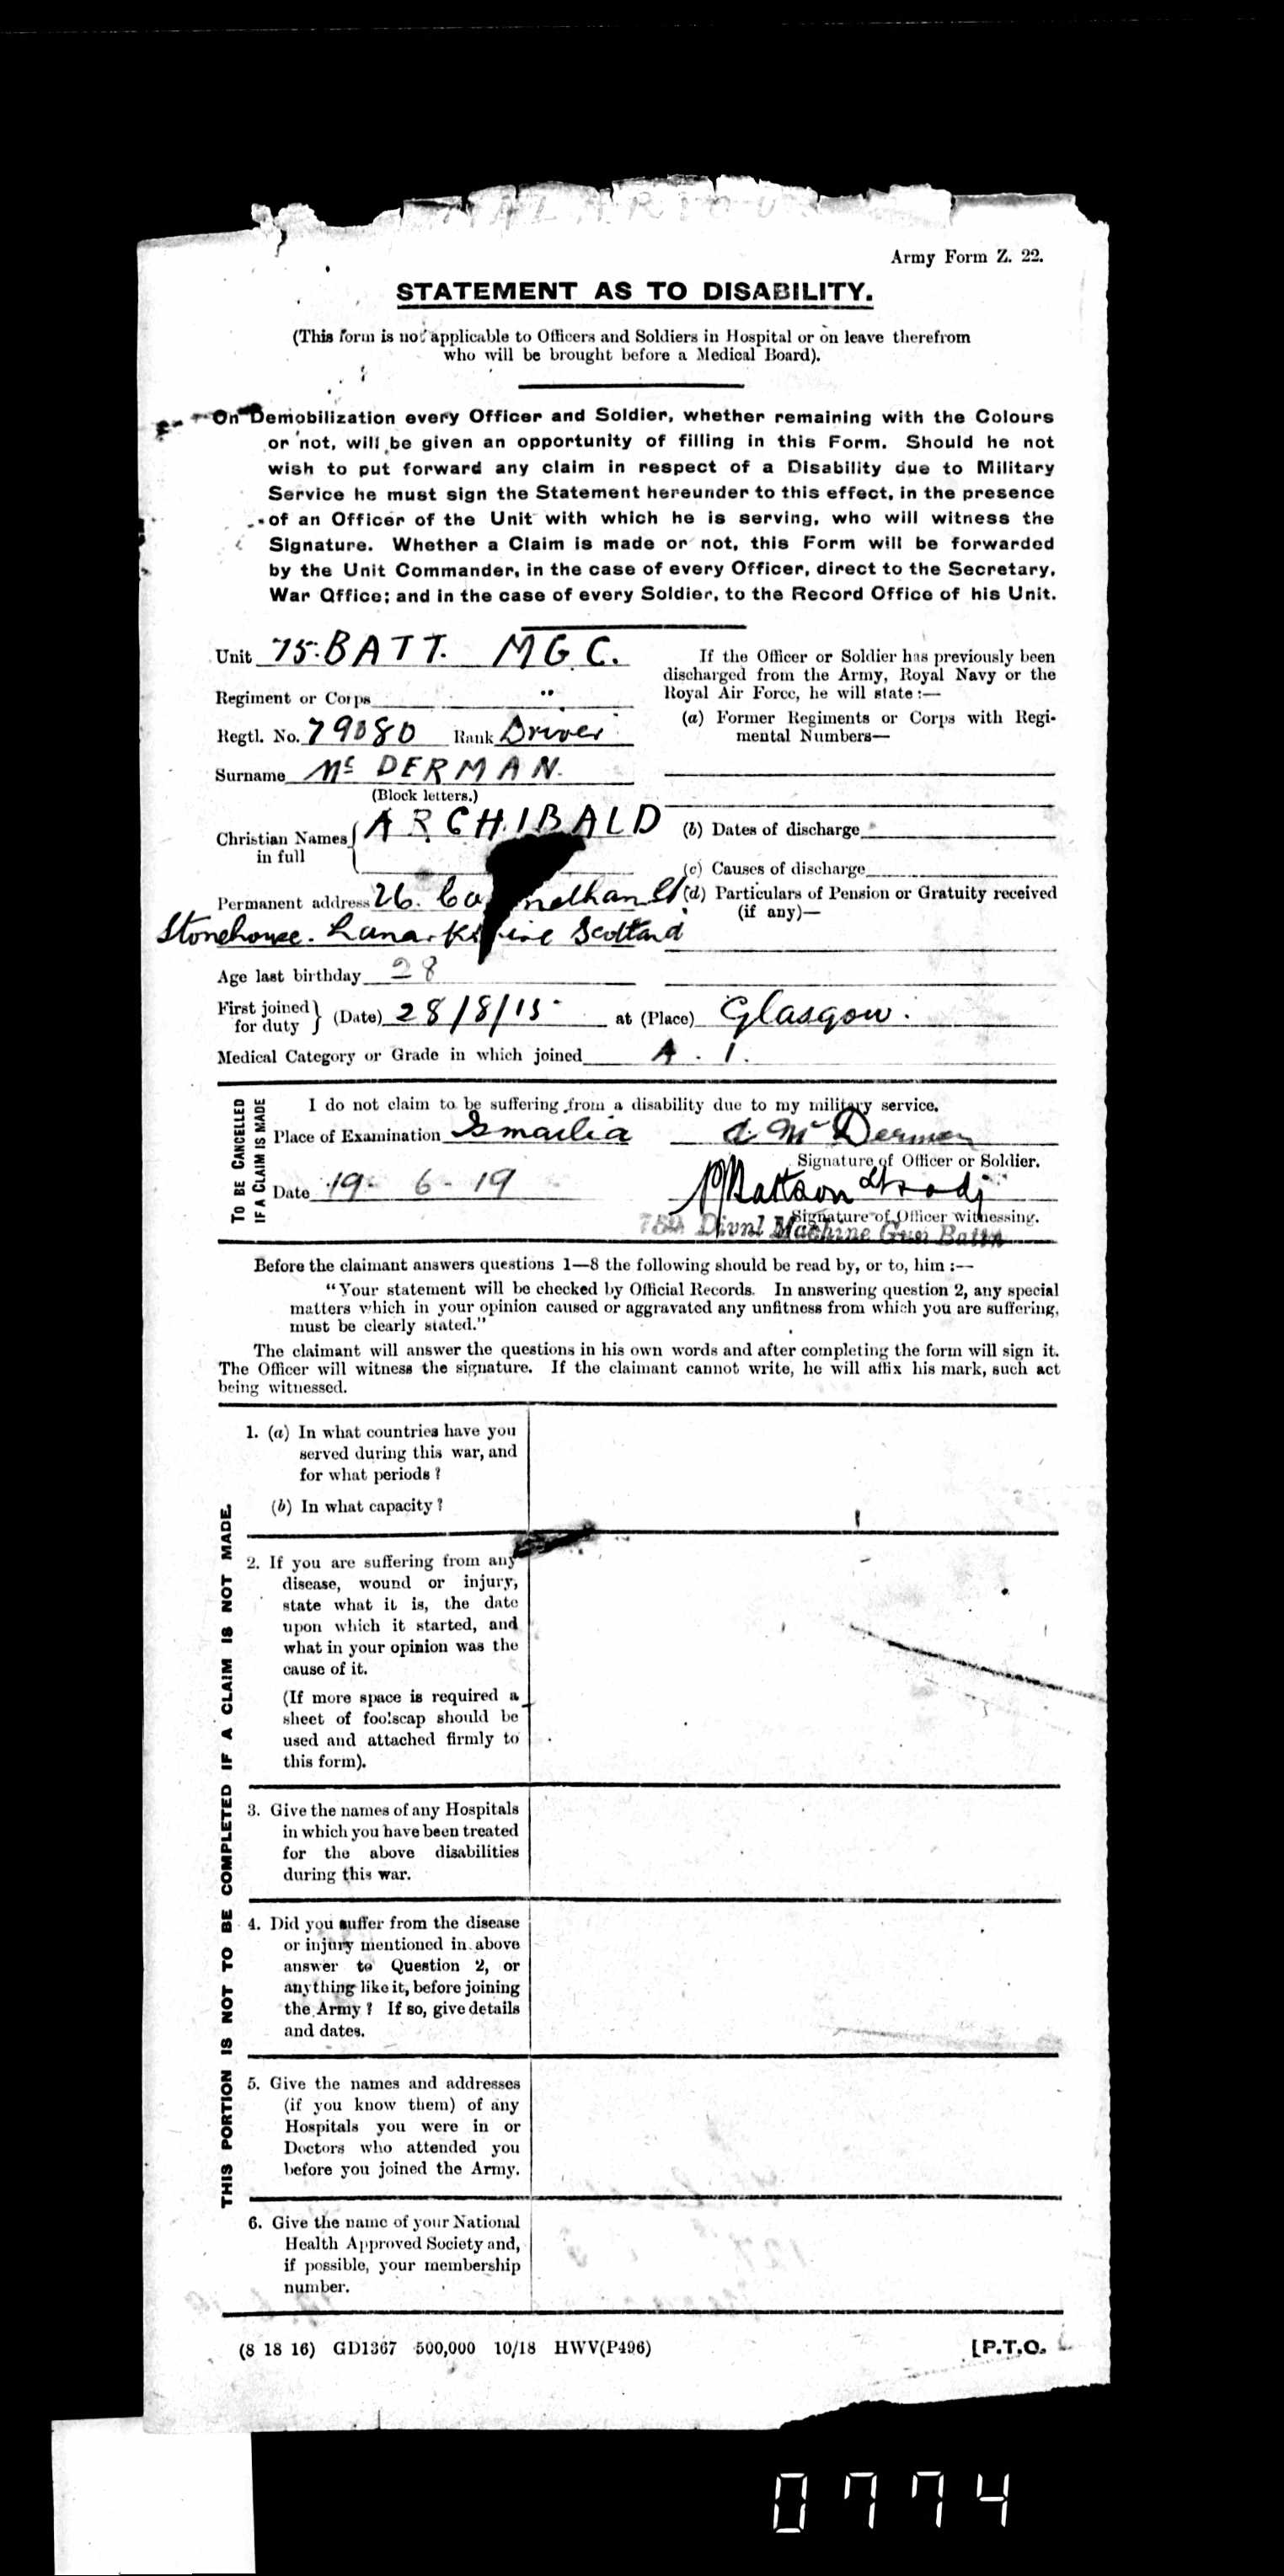 Army Form Z. 22.
STATEMENT AS TO DISABILITY.
(This form is not applicable to Officers and Soldiers in Hospital or on leave therefrom
who will be brought before a Medical Board).
On Demobilization every Officer and Soldier, whether remaining with the Colours
or not, will be given an opportunity of filling in this Form. Should he not
wish to put forward any claim in respect of a Disability due to Military
Service he must sign the Statement hereunder to this effect, in the presence
of an Officer of the Unit with which he is serving, who will witness the
Signature. Whether a Claim is made or not, this Form will be forwarded
by the Unit Commander, in the case of every Officer, direct to the Secretary,
War Office; and in the case of every Soldier, to the Record Office of his Unit.
Unit 75. BATT. M G C.
Regiment or Corps "
Regtl. No. 79080 Rank Driver
Surname Mc DERMAN.
(Block letters.)
Christian Names in full ARCHIBALD
Permanent address 26. St
Stonehouse. Lanarkshire Scotland
Age last birthday 28
If the Officer or Soldier has previously been
discharged from the Army, Royal Navy or the
Royal Air Force, he will state:—
(a) Former Regiments or Corps with Regi-
mental Numbers—
(b) Dates of discharge
(c) Causes of discharge
(d) Particulars of Pension or Gratuity received
(if any)—
First joined for duty } (Date) 28/8/15 at (Place) Glasgow.
Medical Category or Grade in which joined A. 1.
TO BE CANCELLED
IF A CLAIM IS MADE
I do not claim to be suffering from a disability due to my military service.
Place of Examination Ismailia A. Mc Derman
Signature of Officer or Soldier.
Date 19- 6- 19
Signature of Officer witnessing.
Divnl Machine Gun Battn
Before the claimant answers questions 1—8 the following should be read by, or to, him :—
"Your statement will be checked by Official Records. In answering question 2, any special
matters which in your opinion caused or aggravated any unfitness from which you are suffering,
must be clearly stated."
The claimant will answer the questions in his own words and after completing the form will sign it.
The Officer will witness the signature. If the claimant cannot write, he will affix his mark, such act
being witnessed.
THIS PORTION IS NOT TO BE COMPLETED IF A CLAIM IS NOT MADE.
1. (a) In what countries have you
served during this war, and
for what periods ?
(b) In what capacity ?
2. If you are suffering from any
disease, wound or injury,
state what it is, the date
upon which it started, and
what in your opinion was the
cause of it.
(If more space is required a
sheet of foolscap should be
used and attached firmly to
this form).
3. Give the names of any Hospitals
in which you have been treated
for the above disabilities
during this war.
4. Did you suffer from the disease
or injury mentioned in above
answer to Question 2, or
anything like it, before joining
the Army ? If so, give details
and dates.
5. Give the names and addresses
(if you know them) of any
Hospitals you were in or
Doctors who attended you
before you joined the Army.
6. Give the name of your National
Health Approved Society and,
if possible, your membership
number.
(8 18 16) GD1367 500,000 10/18 HWV(P496) [P.T.O.
0774